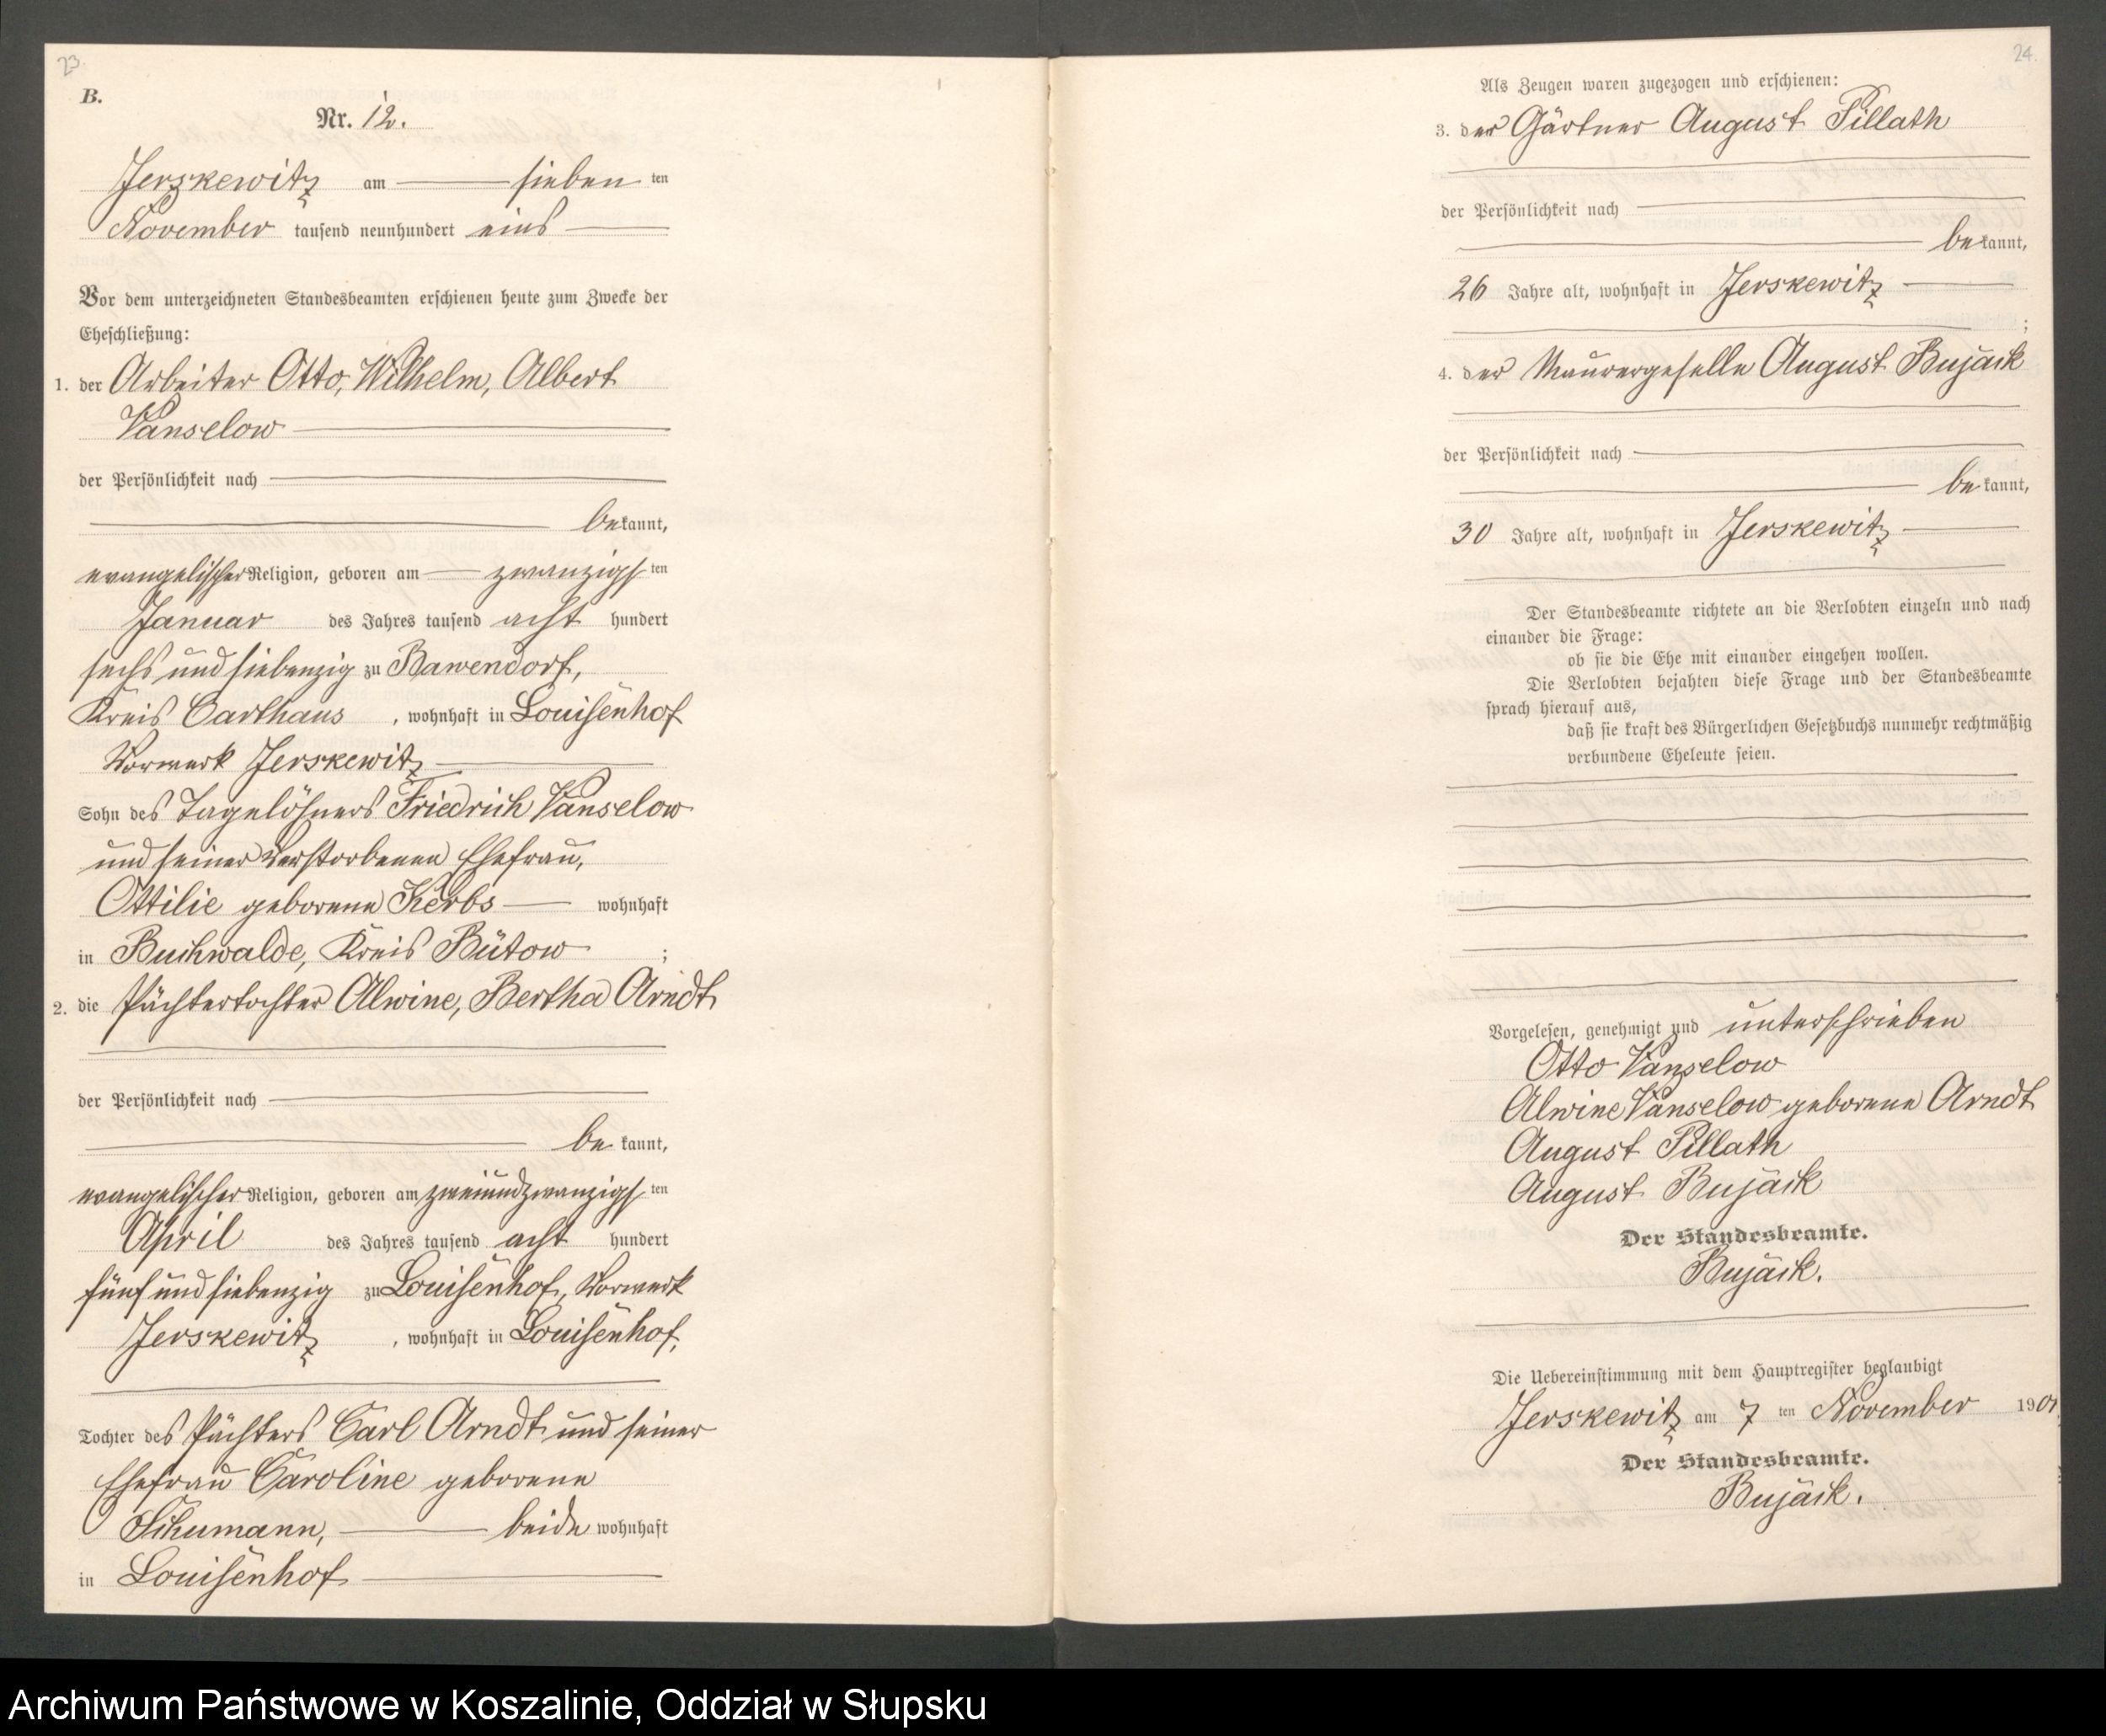 23.
B.
Nr. 12.
Jerskewitz am sieben ten
November tausend neunhundert eins
Vor dem unterzeichneten Standesbeamten erschienen heute zum Zwecke der
Eheschließung:
1. der Arbeiter Otto, Wilhelm, Albert
Vanselow
der Persönlichkeit nach
bekannt,
evangelischer Religion, geboren am zwanzigsten
Januar des Jahres tausend acht hundert
sechs und siebenzig zu Bawendorf,
Kreis Carthaus, wohnhaft in Louisenhof
Vorwerk Jerskewitz
Sohn des Tagelöhners Friedrich Vanselow
und seiner verstorbenen Ehefrau,
Ottilie geborene Kerbs wohnhaft
in Buchwalde, Kreis Bütow ;
2. die Pächtertochter Alwine, Bertha Arndt
der Persönlichkeit nach
bekannt,
evangelischer Religion, geboren am zweiundzwanzigsten
April des Jahres tausend acht hundert
fünf und siebenzig zu Louisenhof, Vorwerk
Jerskewitz, wohnhaft in Louisenhof,
Tochter des Pächters Carl Arndt und seiner
Ehefrau Caroline geborene
Schumann, beide wohnhaft
in Louisenhof
24.
Als Zeugen waren zugezogen und erschienen:
3. der Gärtner August Pillath
der Persönlichkeit nach
bekannt,
26 Jahre alt, wohnhaft in Jerskewitz
;
4. der Maurergeselle August Bujack
der Persönlichkeit nach
bekannt,
30 Jahre alt, wohnhaft in Jerskewitz
Der Standesbeamte richtete an die Verlobten einzeln und nach
einander die Frage:
ob sie die Ehe mit einander eingehen wollen.
Die Verlobten bejahten diese Frage und der Standesbeamte
sprach hierauf aus,
daß sie kraft des Bürgerlichen Gesetzbuchs nunmehr rechtmäßig
verbundene Eheleute seien.
Vorgelesen, genehmigt und unterschrieben
Otto Vanselow
Alwine Vanselow geborene Arndt
August Pillath
August Bujack
Der Standesbeamte.
Bujack.
Die Uebereinstimmung mit dem Hauptregister beglaubigt
Jerskewitz am 7 ten November 1901
Der Standesbeamte.
Bujack.
Archiwum Państwowe w Koszalinie, Oddział w Słupsku